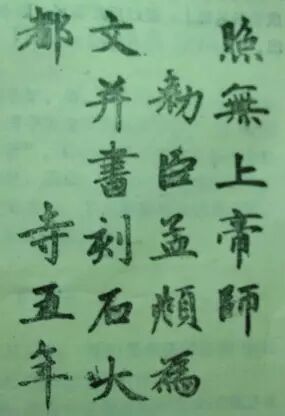 照無上帝師
勑臣孟頫為
文并書刻石大
都　寺五年